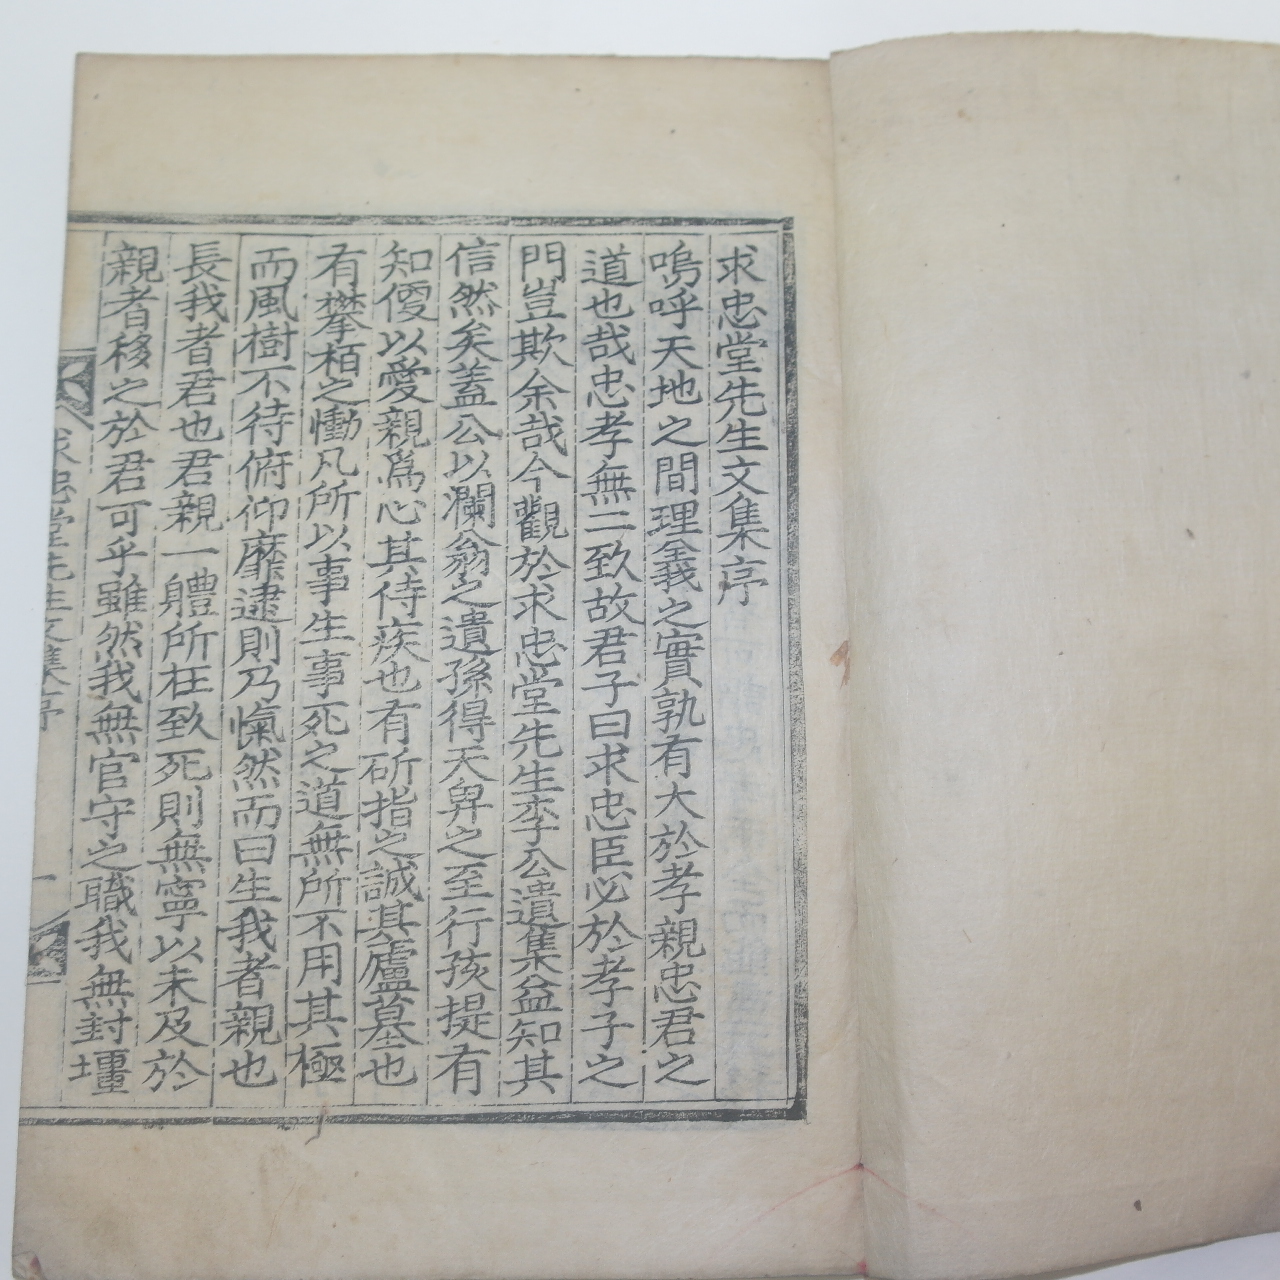 求忠堂先生文集序
嗚呼天地之間理全義之實孰有大於孝親忠君之
道也哉忠孝無二致故君子曰求忠臣必於孝子之
門豈欺余哉今觀於求忠堂先生李公遺集益知其
信然矣蓋公以瀾翁之遺孫得天畀之至行孩提有
知便以愛親爲心其侍疾也有斫指之誠其廬墓也
有攀栢之慟凡所以事生事死之道無所不用其極
而風樹不待俯仰靡逮則乃愾然而曰生我者親也
長我者君也君親一體所在致死則無寧以未及於
親者移之於君可乎雖然我無官守之職我無封壃
求忠堂先生文集序
一